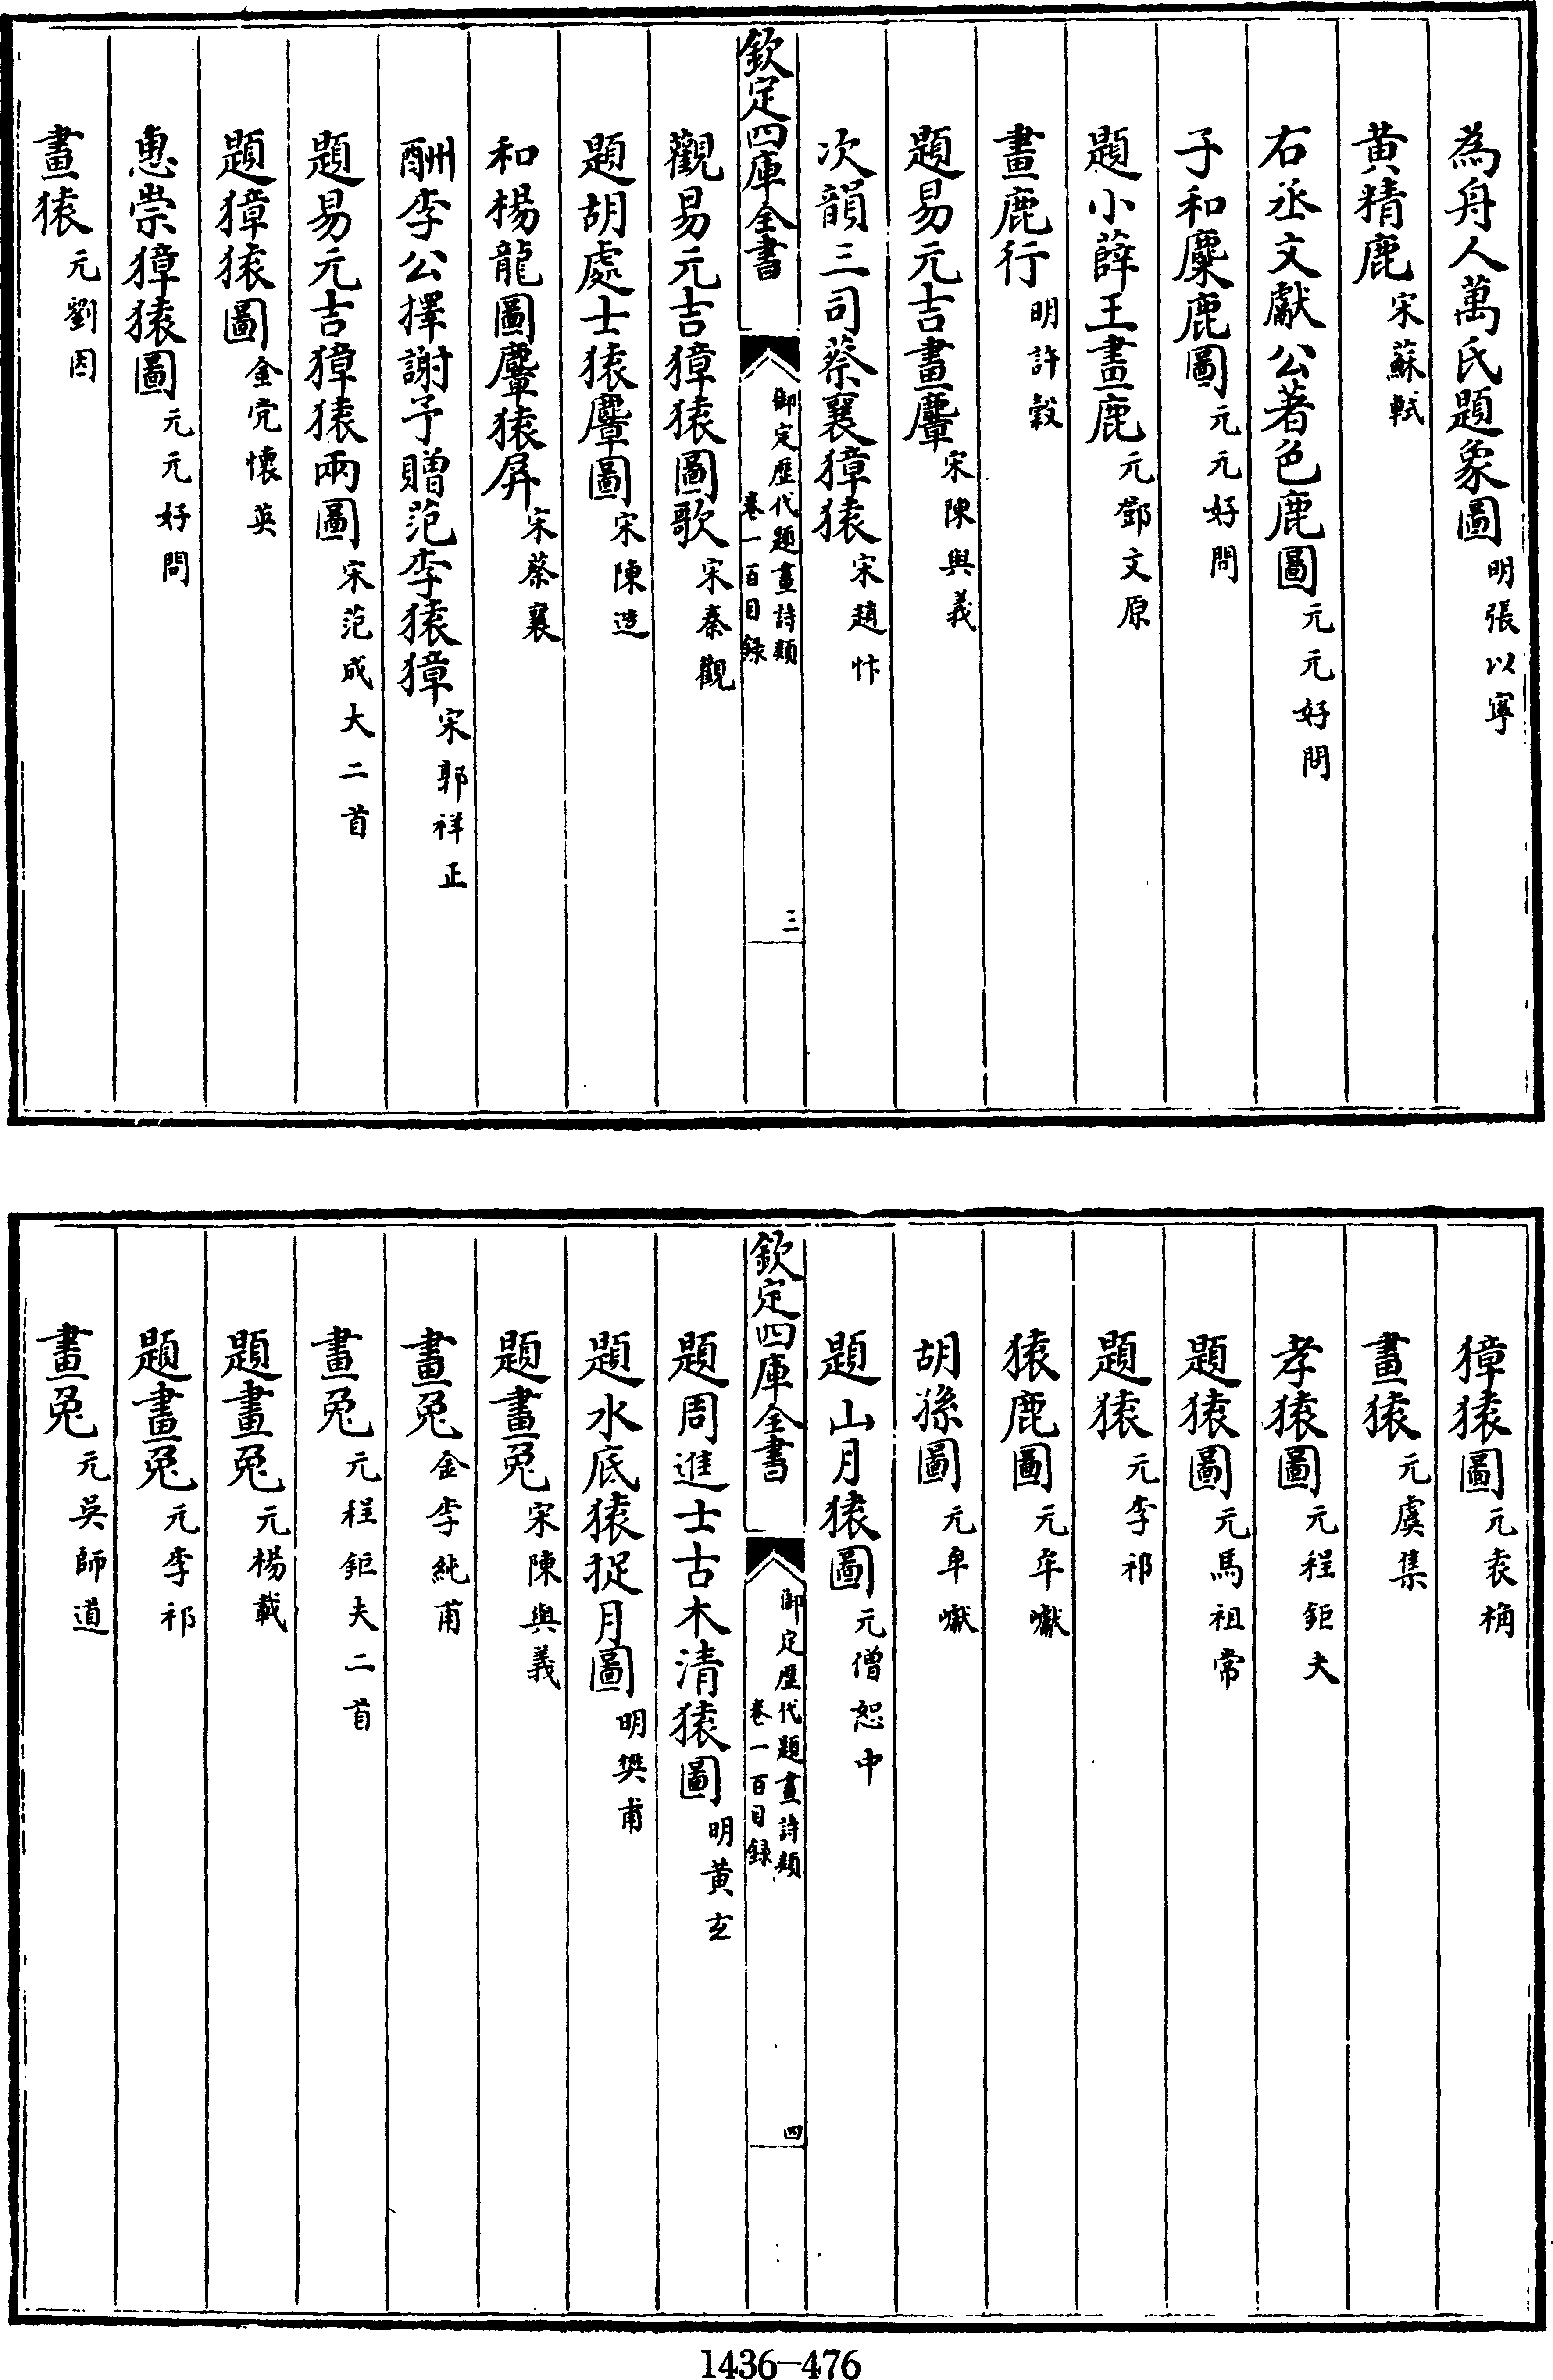 為舟人萬氏題象圖 明張以寧
黄精鹿 宋蘇軾
右丞文獻公著色鹿圖 元元好問
子和麋鹿圖 元元好問
題小薛王畫鹿 元鄧文原
畫鹿行 明許穀
題易元吉畫麞 宋陳與義
次韻三司蔡襄獐猿 宋趙忭
欽定四庫全書
御定歷代題畫詩類
卷一百目録
三
觀易元吉獐猿圖歌 宋秦觀
題胡處士猿麞圖 宋陳造
和楊龍圖麞猿屏 宋蔡襄
酬李公擇謝予贈范李猿獐 宋郭祥正
題易元吉獐猿兩圖 宋范成大二首
題獐猿圖 金党懷英
惠崇獐猿圖 元元好問
畫猿 元劉因
獐猿圖 元袁桷
畫猿 元虞集
孝猿圖 元程鉅夫
題猿圖 元馬祖常
題猿 元李祁
猿鹿圖 元牟巘
胡孫圖 元牟巘
題山月猿圖 元僧恕中
欽定四庫全書
御定歷代題畫詩類
卷一百目録
四
題周進士古木清猿圖 明黄玄
題水底猿捉月圖 明樊甫
題畫兔 宋陳與義
畫兔 金李純甫
畫兔 元程鉅夫二首
題畫兔 元楊載
題畫兔 元李祁
畫兔 元吳師道
1436-476